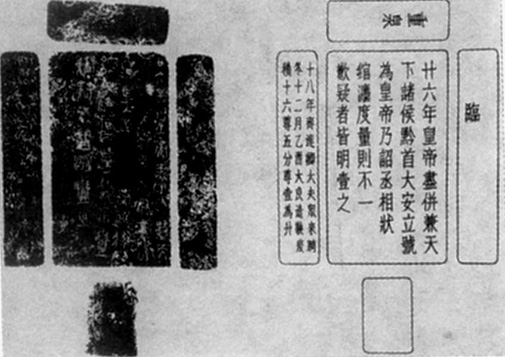 重泉
臨
廿六年皇帝盡併兼天
下諸侯黔首大安立號
為皇帝乃詔丞相狀
綰灋度量則不一
歉疑者皆明壹之
十八年齊遣卿大夫眾來聘
冬十二月乙酉大良造鞅爰
積十六尊五分尊壹為升